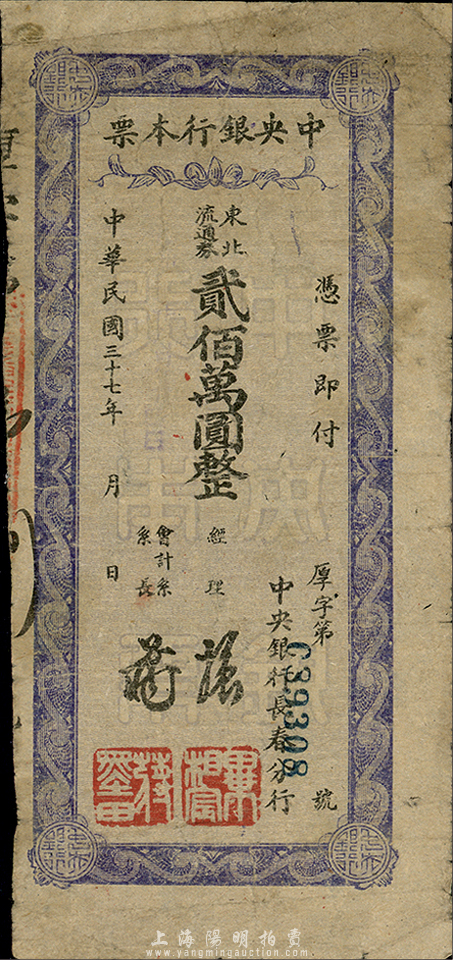 中央銀行本票
憑票即付
厚字第 C39308 號
中央銀行長春分行
東北
流通券
貳佰萬圓整
經理
會計系
系長
中華民國三十七年 月 日
上海陽明拍賣
www.yangmingauction.com